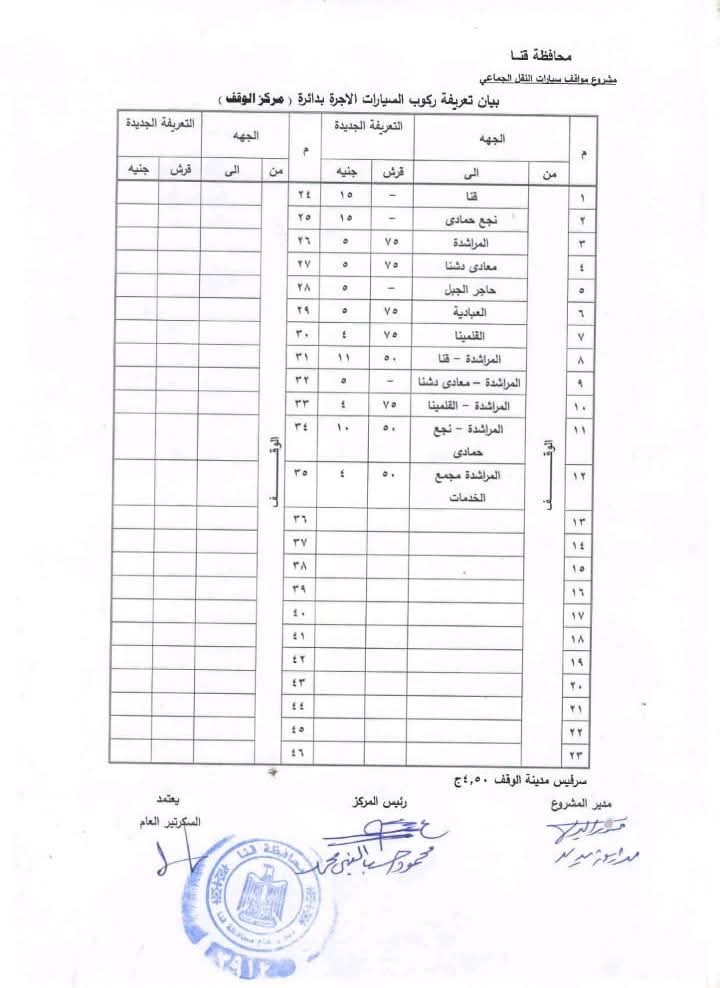 محافظة قنـا
مشروع مواقف سيارات النقل الجماعي
بيان تعريفة ركوب السيارات الاجرة بدائرة ( مركز الوقف )
م الجهه التعريفة الجديدة م الجهه التعريفة الجديدة
من الى قرش جنيه من الى قرش جنيه
١ قنا – ١٥ ٢٤
٢ نجع حمادى – ١٥ ٢٥
٣ المراشدة ٧٥ ٥ ٢٦
٤ معادى دشنا ٧٥ ٥ ٢٧
٥ حاجر الجبل – ٥ ٢٨
٦ العبادية ٧٥ ٥ ٢٩
٧ القلمينا ٧٥ ٤ ٣٠
٨ المراشدة – قنا ٥٠ ١١ ٣١
٩ المراشدة – معادى دشنا – ٥ ٣٢
١٠ المراشدة – القلمينا ٧٥ ٤ ٣٣
١١ المراشدة – نجع ٥٠ ١٠ ٣٤
حمادى
الوقـــف الوقـــف
١٢ المراشدة مجمع ٥٠ ٤ ٣٥
الخدمات
١٣ ٣٦
١٤ ٣٧
١٥ ٣٨
١٦ ٣٩
١٧ ٤٠
١٨ ٤١
١٩ ٤٢
٢٠ ٤٣
٢١ ٤٤
٢٢ ٤٥
٢٣ ٤٦
سرفيس مدينة الوقف ٤,٥٠ج
مدير المشروع رئيس المركز يعتمد
السكرتير العام
محمود حسب النبى محمد
محافظة قنا